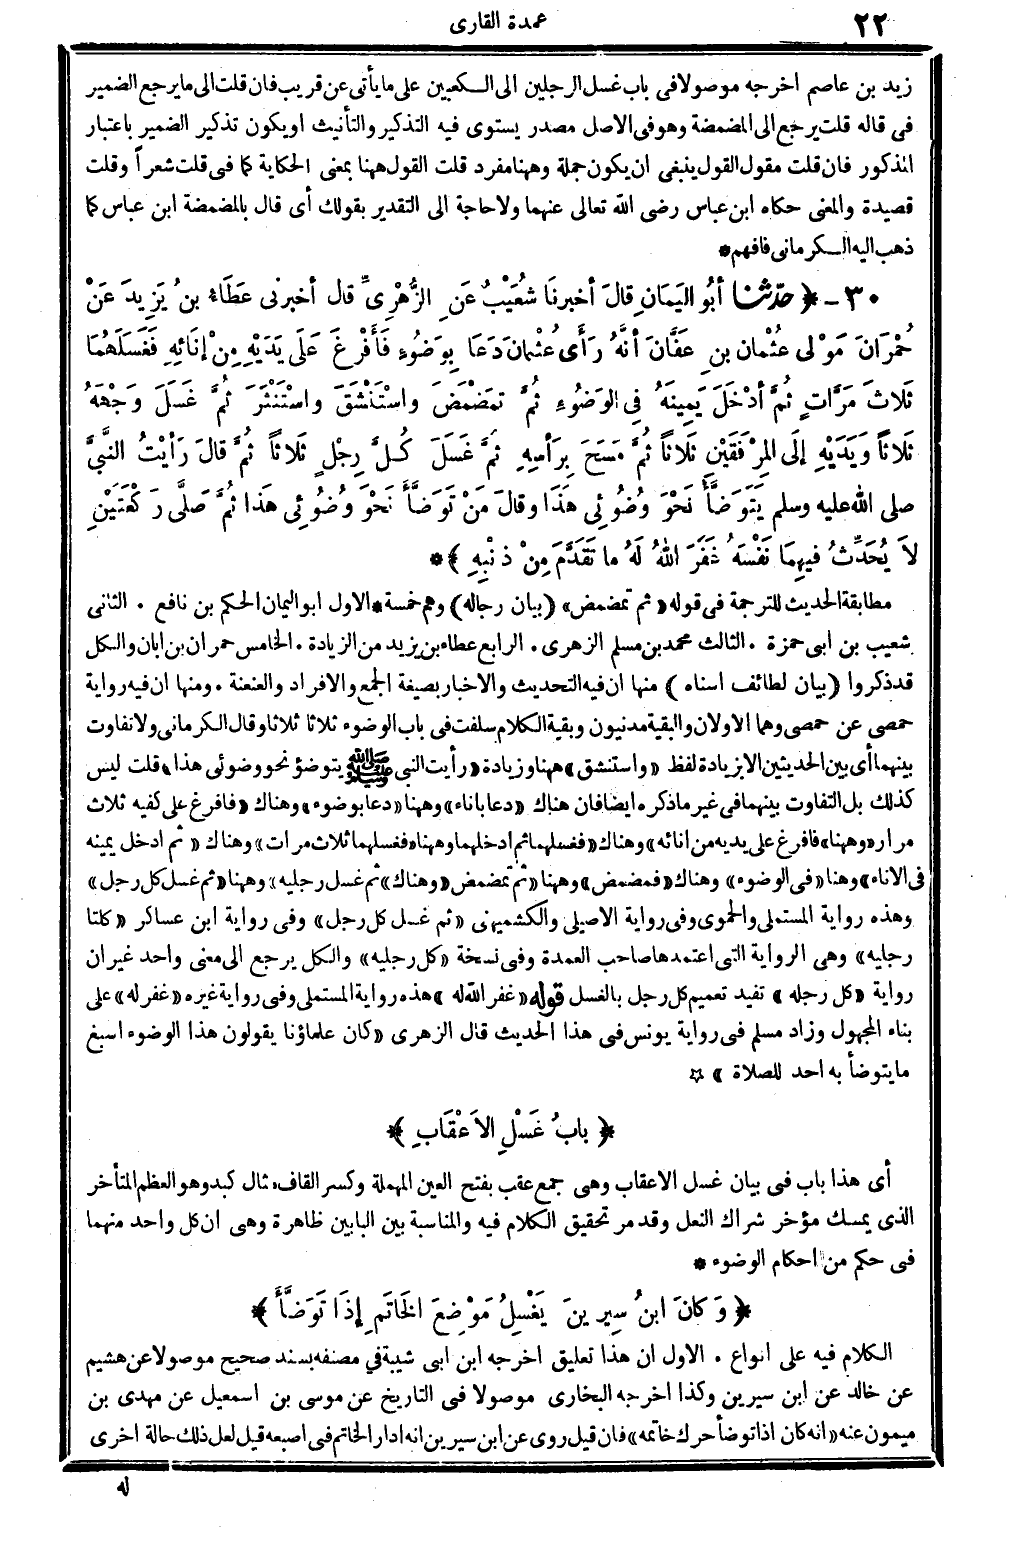 ٢٢
عمدة القارى
زيد بن عاصم اخرجه موصولا فى باب غسل الرجلين الى الكعبين على ما يأتى عن قريب فان قلت الى ما يرجع الضمير
فى قاله قلت يرجع الى المضمضة وهو فى الاصل مصدر يستوى فيه التذكير والتأنيث او يكون تذكير الضمير باعتبار
المذكور فان قلت مقول القول ينبغى ان يكون جملة وههنا مفرد قلت القول ههنا بمعنى الحكاية كما فى قلت شعرا وقلت
قصيدة والمعنى حكاه ابن عباس رضى الله تعالى عنهما ولا حاجة الى التقدير بقولك أى قال بالمضمضة ابن عباس كما
ذهب اليه الكرمانى فافهم*
٣٠ - ﴿ حدّثنا أبُو اليَمانِ قالَ أخبرنَا شُعَيْبٌ عَنِ الزُّهْرِىِّ قال أخبرنى عَطَاءُ بنُ يَزِيدَ عَنْ
حُمْرَانَ مَوْلَى عُثْمان بنِ عفَّانَ أنَّهُ رَأَى عُثْمانَ دَعَا بِوَضُوءٍ فَأَفْرغَ عَلَى يَدَيْهِ مِنْ إنَائِهِ فَغَسَلَهُمَا
ثَلاثَ مَرَّاتٍ ثُمَّ أدْخَلَ يَمِينَهُ فِى الوَضُوءِ ثُمَّ تمَضْمَضَ واسْتَنْشَقَ واسْتَنْثَرَ ثُمَّ غَسَلَ وَجْهَهُ
ثَلَاثاً وَيَدَيْهِ إلَى المِرْفَقَيْنِ ثَلَاثاً ثُمَّ مَسَحَ بِرَأسِهِ ثُمَّ غَسَلَ كُلَّ رِجْلٍ ثَلَاثاً ثُمَّ قالَ رَأيْتُ النَّبىَّ
صلى الله عليه وسلم يَتَوَضَّأُ نَحْوَ وُضُوئِى هَذَا وقالَ مَنْ تَوَضَّأَ نَحْوَ وُضُوئِى هذا ثُمَّ صَلَّى رَكْعَتَيْنِ
لاَ يُحَدِّثُ فيهِمَا نَفْسَهُ غَفَرَ اللهُ لَهُ ما تَقَدَّمَ مِنْ ذنْبِهِ ﴾*
مطابقة الحديث للترجمة فى قوله «ثم تمضمض» (بيان رجاله) وهم خمسة* الاول ابو اليمان الحكم بن نافع . الثانى
شعيب بن ابى حمزة . الثالث محمد بن مسلم الزهرى . الرابع عطاء بن يزيد من الزيادة . الخامس حمران بن ابان والكل
قد ذكروا (بيان لطائف اسناه) منها ان فيه التحديث والاخبار بصيغة الجمع والافراد والعنعنة . ومنها ان فيه رواية
حمصى عن حمصى وهما الاولان والبقية مدنيون وبقية الكلام سلفت فى باب الوضوء ثلاثا ثلاثا وقال الكرمانى ولا تفاوت
بينهما أى بين الحديثين الا بزيادة لفظ «واستنشق» ههنا وزيادة «رأيت النبى ﷺ يتوضؤ نحو وضوئى هذا» قلت ليس
كذلك بل التفاوت بينهما فى غير ما ذكره ايضا فان هناك «دعا باناء» وههنا «دعا بوضوء» وهناك «فافرغ على كفيه ثلاث
مرار» وههنا «فافرغ على يديه من انائه» وهناك «فغسلهما ثم ادخلهما وههنا «فغسلهما ثلاث مرات» وهناك « ثم ادخل يمينه
فى الاناء» وهنا «فى الوضوء» وهناك «فمضمض» وههنا «ثم تمضمض «وهناك» ثم غسل رجليه» وههنا «ثم غسل كل رجل»
وهذه رواية المستملى والحموى وفى رواية الاصيلى والكشميهنى «ثم غسل كل رجل» وفى رواية ابن عساكر «كلتا
رجليه» وهى الرواية التى اعتمدها صاحب العمدة وفى نسخة «كل رجليه» والكل يرجع الى معنى واحد غير ان
رواية «كل رجله» تفيد تعميم كل رجل بالغسل قوله «غفر الله له» هذه رواية المستملى وفى رواية غيره «غفر له» على
بناء المجهول وزاد مسلم فى رواية يونس فى هذا الحديث قال الزهرى «كان علماؤنا يقولون هذا الوضوء اسبغ
ما يتوضأ به احد للصلاة» ☆
﴿ بابُ غَسْلِ الاَعْقَابِ ﴾
أى هذا باب فى بيان غسل الاعقاب وهى جمع عقب بفتح العين المهملة وكسر القاف مثال كبد وهو العظم المتأخر
الذى يمسك مؤخر شراك النعل وقد مر تحقيق الكلام فيه والمناسبة بين البابين ظاهرة وهى ان كل واحد منهما
فى حكم من احكام الوضوء *
﴿ وَكانَ ابنُ سِيرِينَ يَغْسِلُ مَوْضِعَ الخَاتَمِ إذَا تَوَضَّأَ ﴾
الكلام فيه على انواع . الاول ان هذا تعليق اخرجه ابن ابى شيبة فى مصنفه بسند صحيح موصولا عن هشيم
عن خالد عن ابن سيرين وكذا اخرجه البخارى موصولا فى التاريخ عن موسى بن اسمعيل عن مهدى بن
ميمون عنه «انه كان اذا توضأ حرك خاتمه» فان قيل روى عن ابن سيرين انه ادار الخاتم فى اصبعه قيل لعل ذلك حالة اخرى
له